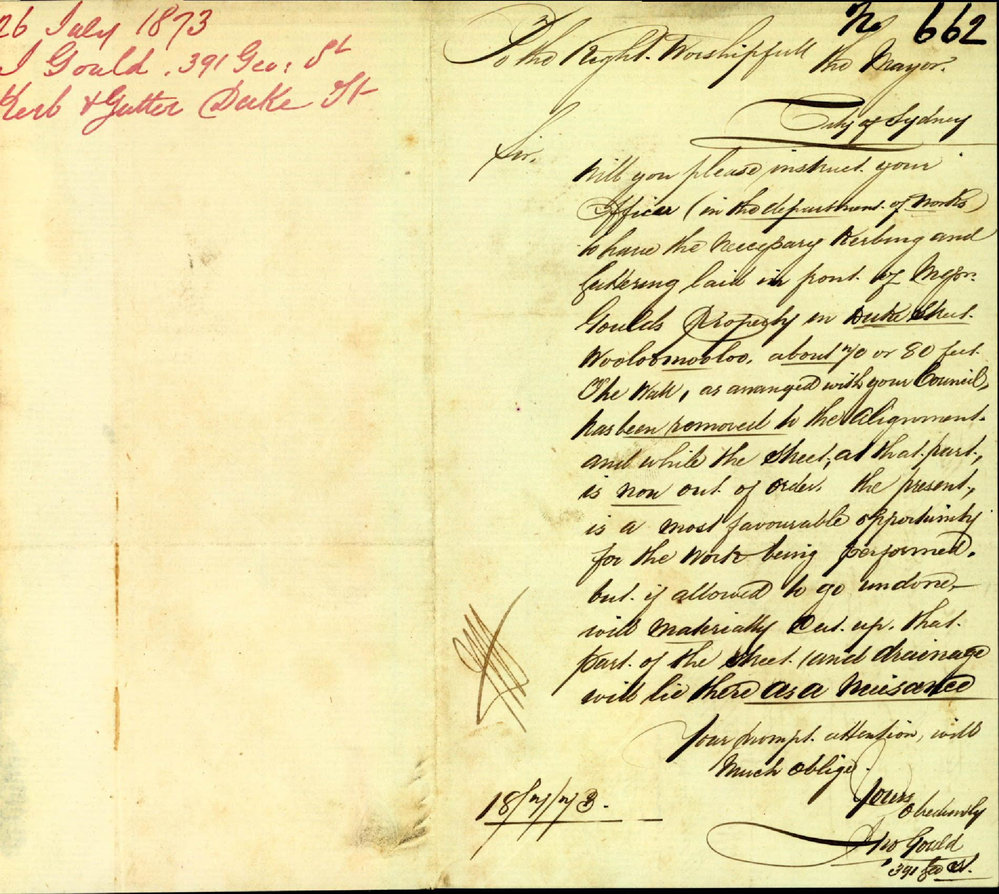 26 July 1873
J Gould, 391 Geo: St
Kerb & Gutter Duke St
No 662
To the Right Worshipfull
the Mayor.
City of Sydney
Sir,
Will you please, instruct your
Officer (in the department of Works)
to have the necessary Kerbing and
Guttering laid in front of
Goulds Property in Duke Street
Wooloomooloo, about 70 or 80 feet
The Wall, as arranged with your Council,
has been removed to the alignment
and while the street, at that part,
is now out of order, the present,
is a most favourable opportunity
for the Work being performed,
but if allowed to go undone,
will materially cut up that
part of the street (and drainage
will lie there as a Nuisance
Your prompt attention, will
Much oblige
Yours
Obediently
Jno Gould
391 Geo St.
18/7/73.